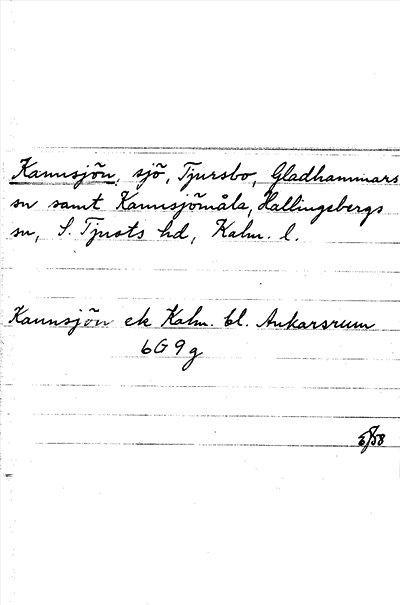 Kannsjön, sjö, Tjursbo, Gladhammars
sn samt Kannsjömåla, Hallingebergs
sn, S. Tjusts hd, Kalm. l.
Kannsjön ek Kalm. bl. Ankarsrum
6G9g